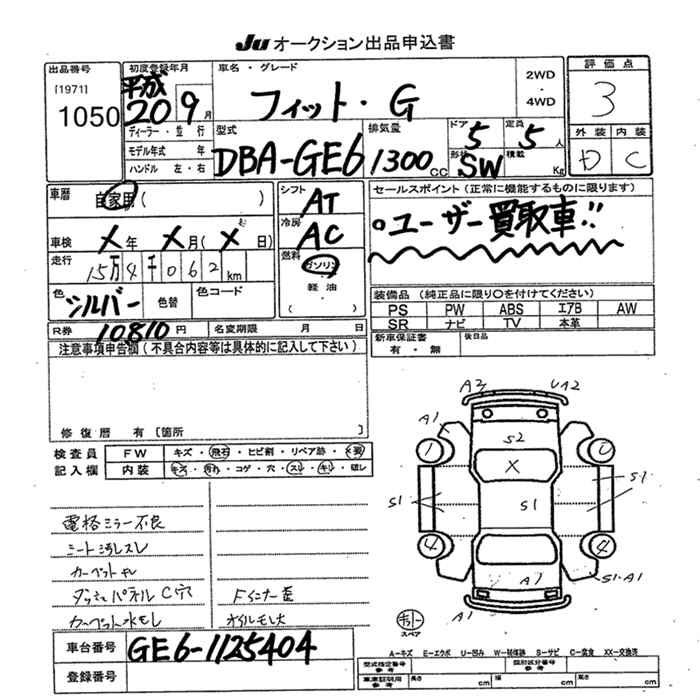 Ju オークション出品申込書
出品番号 初度登録年月 車名・グレード 2WD ・ 4WD 評価点
[1971] 1050 平成 20 9月 フィット・G 3
ディーラー・並行 型式 排気量 ドア 5 定員 5人 外装 内装
モデル年式 年 DBA-GE6 1300cc 形状 SW 積載 Kg D C
ハンドル 左・右
車歴 自家用( ) シフト AT セールスポイント(正常に機能するものに限ります)
車検 X年 X月(X日) 冷房 AC 。ユーザー買取車!!
走行 15万4千062km 燃料 ガソリン
軽油・
( )
色 シルバー 色替 色コード 装備品(純正品に限り○を付けてください)
PS PW ABS エアB AW
SR ナビ TV 本革
R券 10810円 名変期限 月 日 新車保証書 後日品
有・無
注意事項申告欄(不具合内容等は具体的に記入して下さい)
修復歴 有[箇所 ]
検査員 FW キズ・飛石・ヒビ割・リペア跡・X要
記入欄 内装 キズ・汚れ・コゲ・穴・スレ・キレ・破レ
電格ミラー不良
シート汚レスレ
カーペットキレ
ダッシュパネルC穴 Fインナー歪
カーペット水モレ オイルモレ大
A2 U12
A1
1
S2
X
S1 S1 S1
4 4
A1 S1・A1
A1
スペア
A-キズ E-エクボ U-凹み W-補修跡 S-サビ C-腐食 XX-交換済
車台番号 GE6-1125404
登録番号
型式指定番号 参考 類別区分番号 参考
車庫証明用 参考 長さ cm 幅 cm 高さ cm